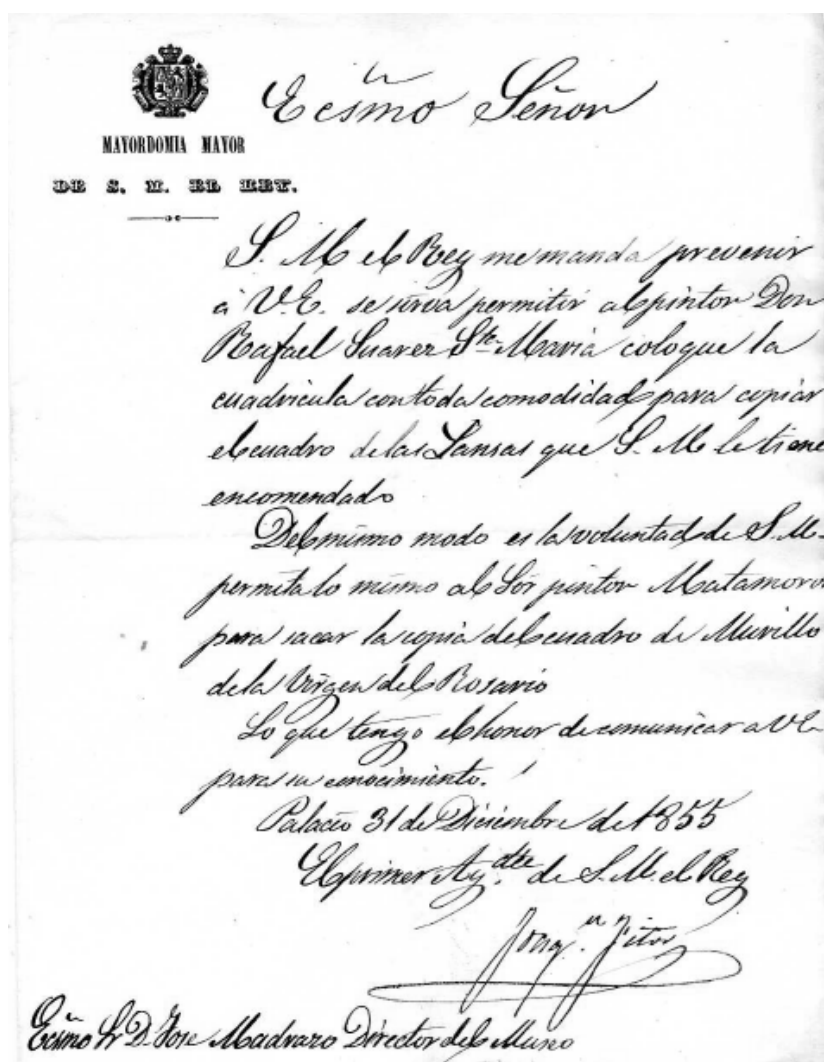 Ecsmo Señor
MAYORDOMIA MAYOR
DE S. M. EL REY.
S. M el Rey me manda prevenir
á V.E. se sirva permitir al pintor Don
Rafael Suarez Sta. Maria coloque la
cuadricula con toda comodidad para copiar
el cuadro de las Lansas que S. M le tiene
encomendado
Del mismo modo es la voluntad de S. M.
permita lo mismo al Sor pintor Matamoros
para sacar la copia del cuadro de Murillo
de la Virgen del Rosario
Lo que tengo el honor de comunicar a VE
para su conocimiento.
Palacio 31 de Diciembre de 1855
El primer Ay.dte de S. M. el Rey
Joaq.n
Ecsmo Sr D. Jose Madrazo Director del Museo